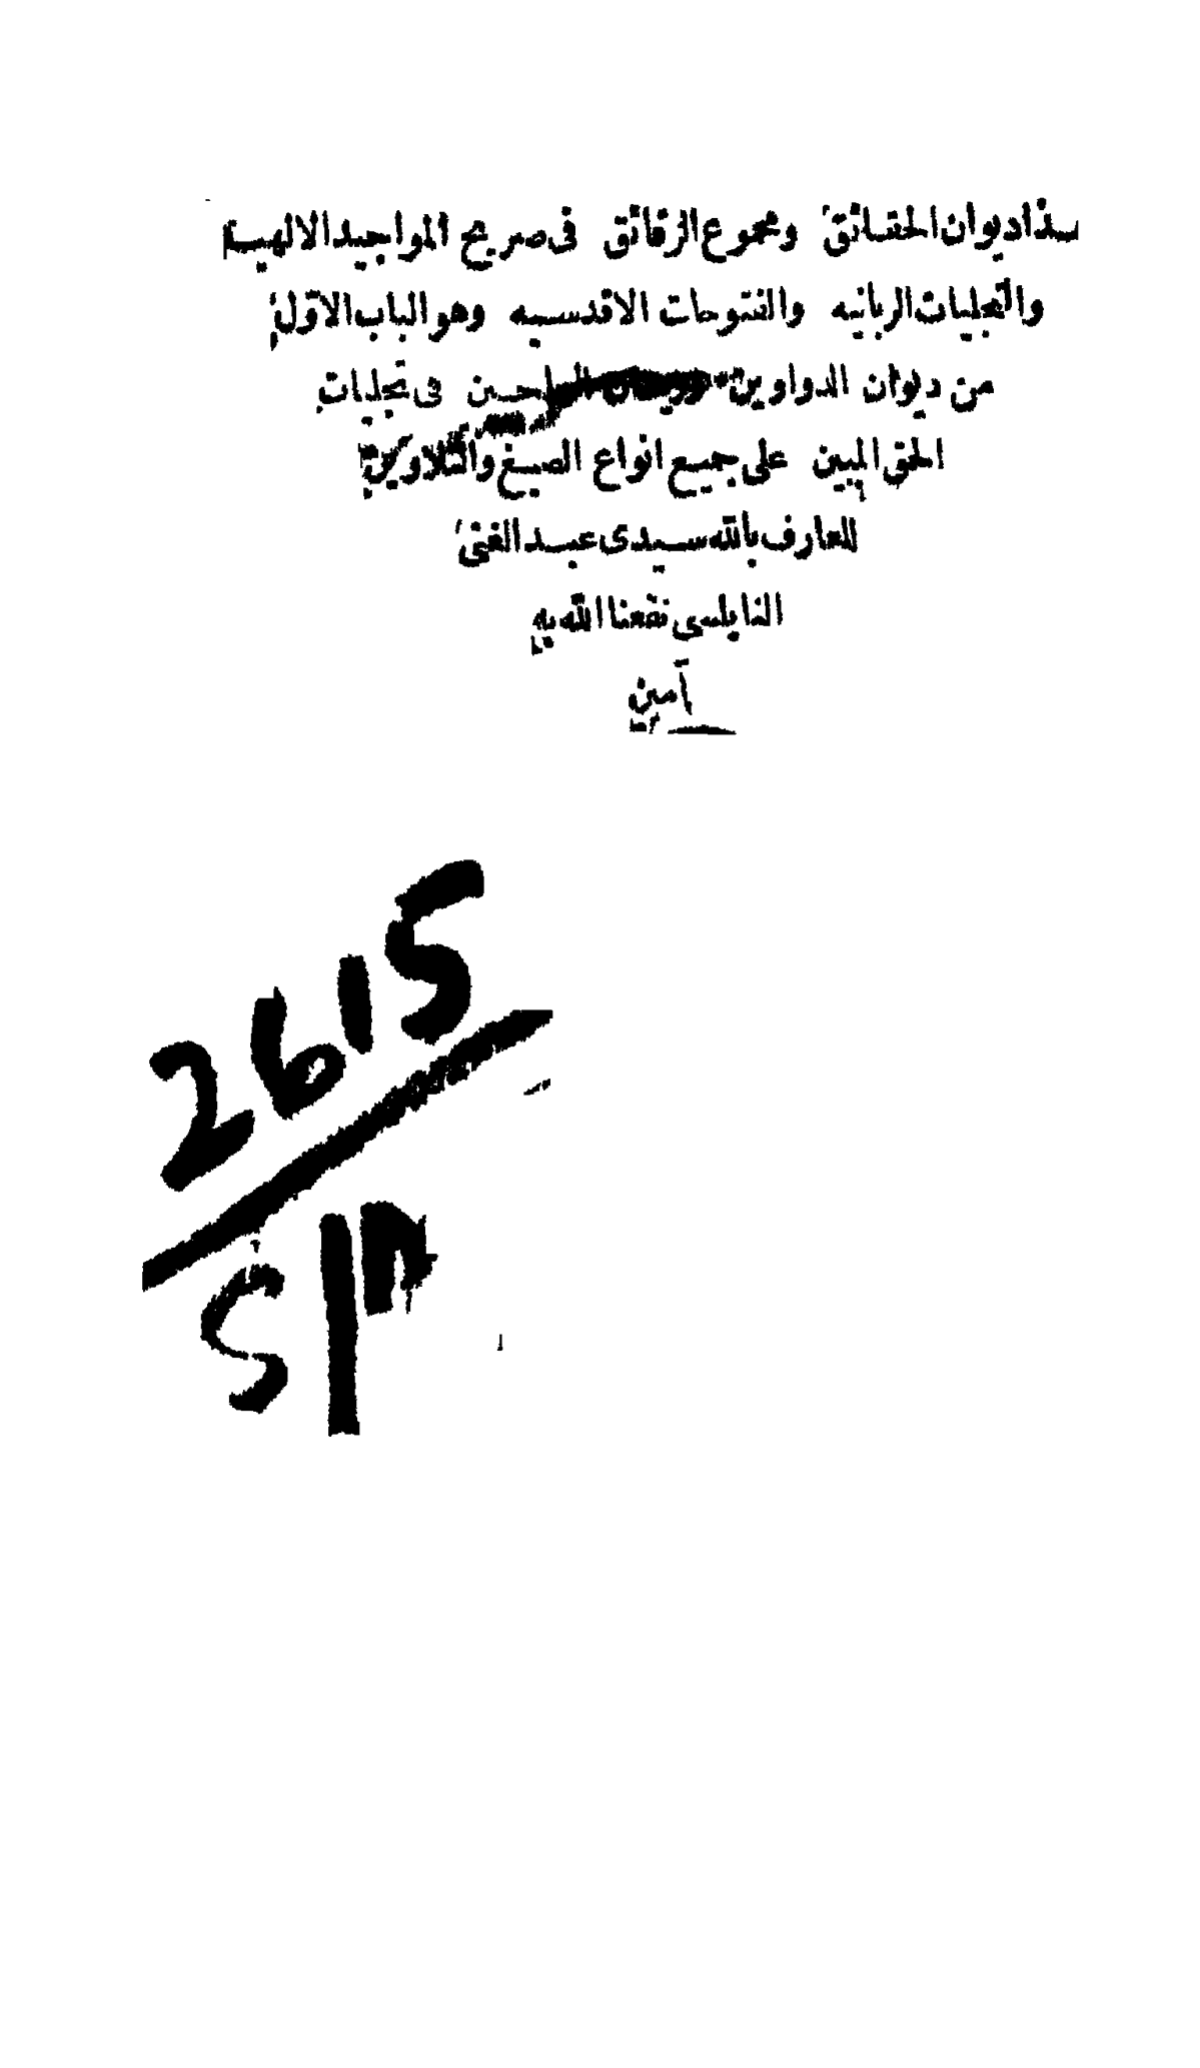 هذا ديوان الحقائق ومجموع الرقائق فى صريح المواجيد الالهيه
والتجليات الربانيه والفتوحات الاقدسيه وهو الباب الاول
من ديوان الدواوين فى تجليات
الحق المبين على جميع انواع الصيغ والتلاوين
للعارف بالله سيدى عبد الغنى
النابلسى نفعنا الله به
آمين
2615